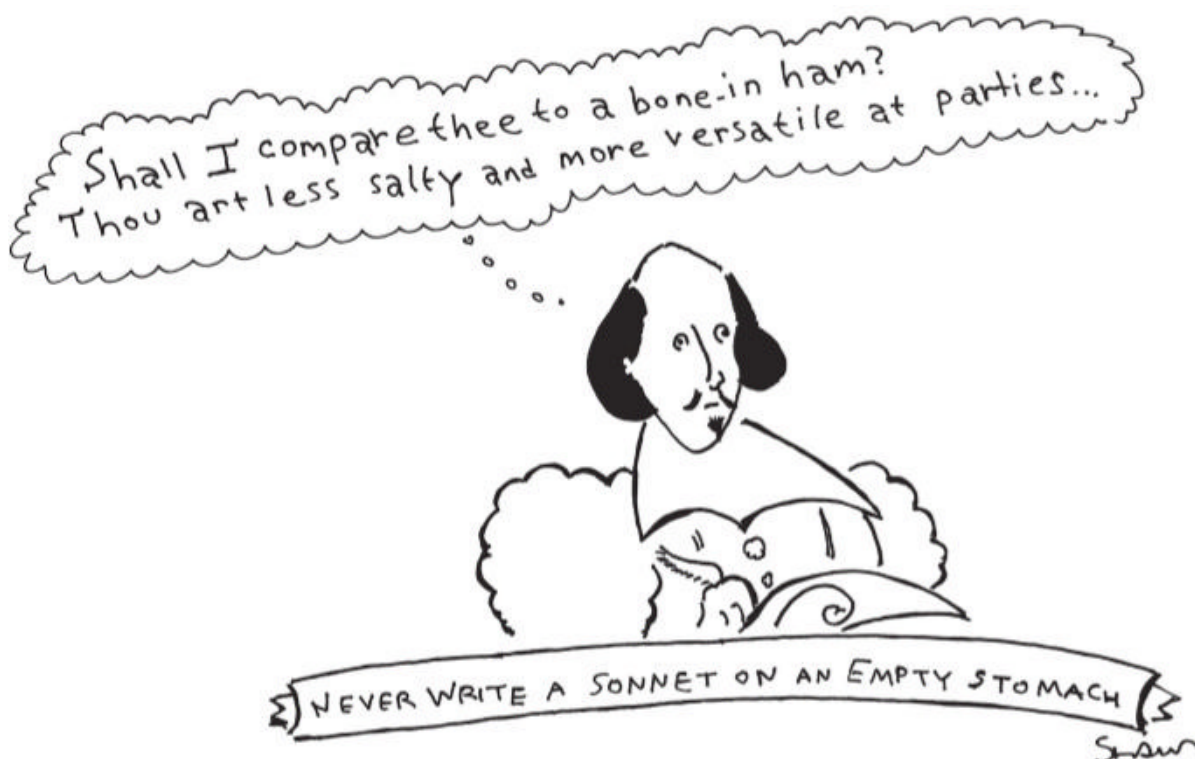 Shall I compare thee to a bone-in ham?
Thou art less salty and more versatile at parties...
NEVER WRITE A SONNET ON AN EMPTY STOMACH